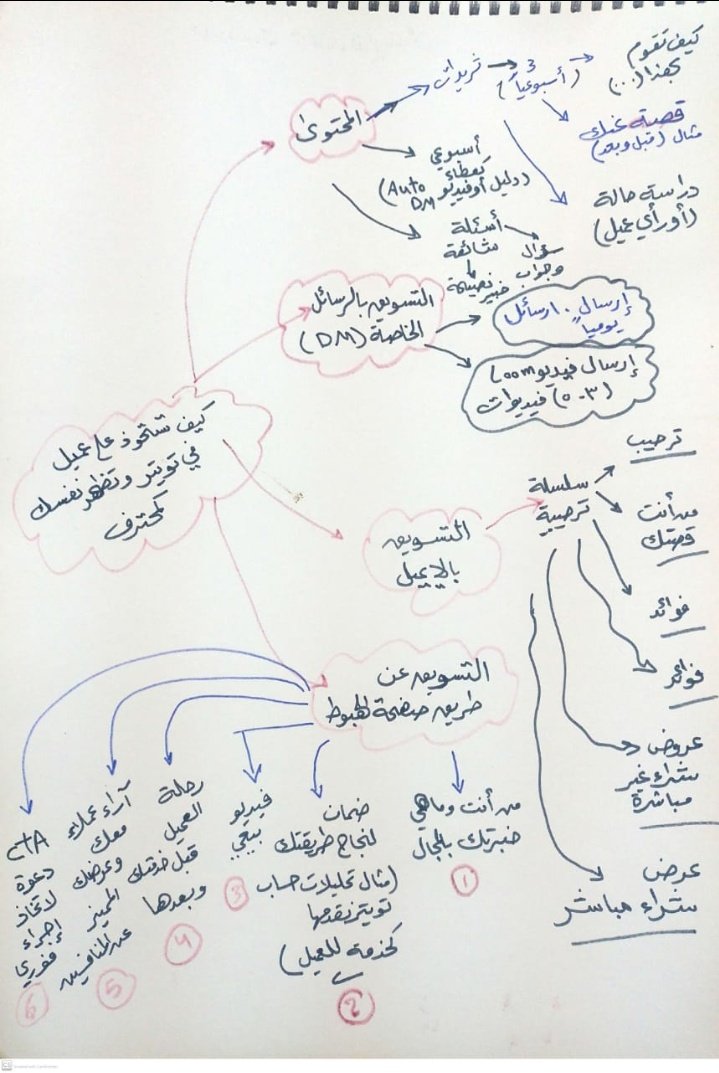 كيف تستحوذ على عميل
في تويتر وتظهر نفسك
كمحترف
المحتوى
ثريدات
3
(أسبوعياً)
كيف تقوم
بهذا (...)
قصة عنك
مثال (قبل وبعد)
دراسة حالة
(أو رأي عميل)
أسبوعي
كعطاء
(دليل أو فيديو Auto
DM)
أسئلة
شائعة
سؤال
وجواب
نصيحة
خبير
التسويق بالرسائل
الخاصة (DM)
إرسال ١٠ رسائل
يومياً
إرسال فيديو Loom
(٣-٥) فيديوات
التسويق
بالإيميل
سلسلة
ترحيبية
ترحيب
من أنت
قصتك
فوائد
فوائد
عروض
شراء غير
مباشرة
عرض
شراء مباشر
التسويق عن
طريق صفحة الهبوط
من أنت وماهي
خبرتك بالمجال
1
ضمان
لنجاح طريقتك
(مثال تحليلات حساب
تويتر نقدمها
كخدمة للعميل)
2
فيديو
بيعي
3
رحلة
العميل
قبل خدمتك
وبعدها
4
آراء عملاء
معك
وعرضك
المميز
عن المنافسين
5
CTA
دعوة
لاتخاذ
إجراء
فوري
6